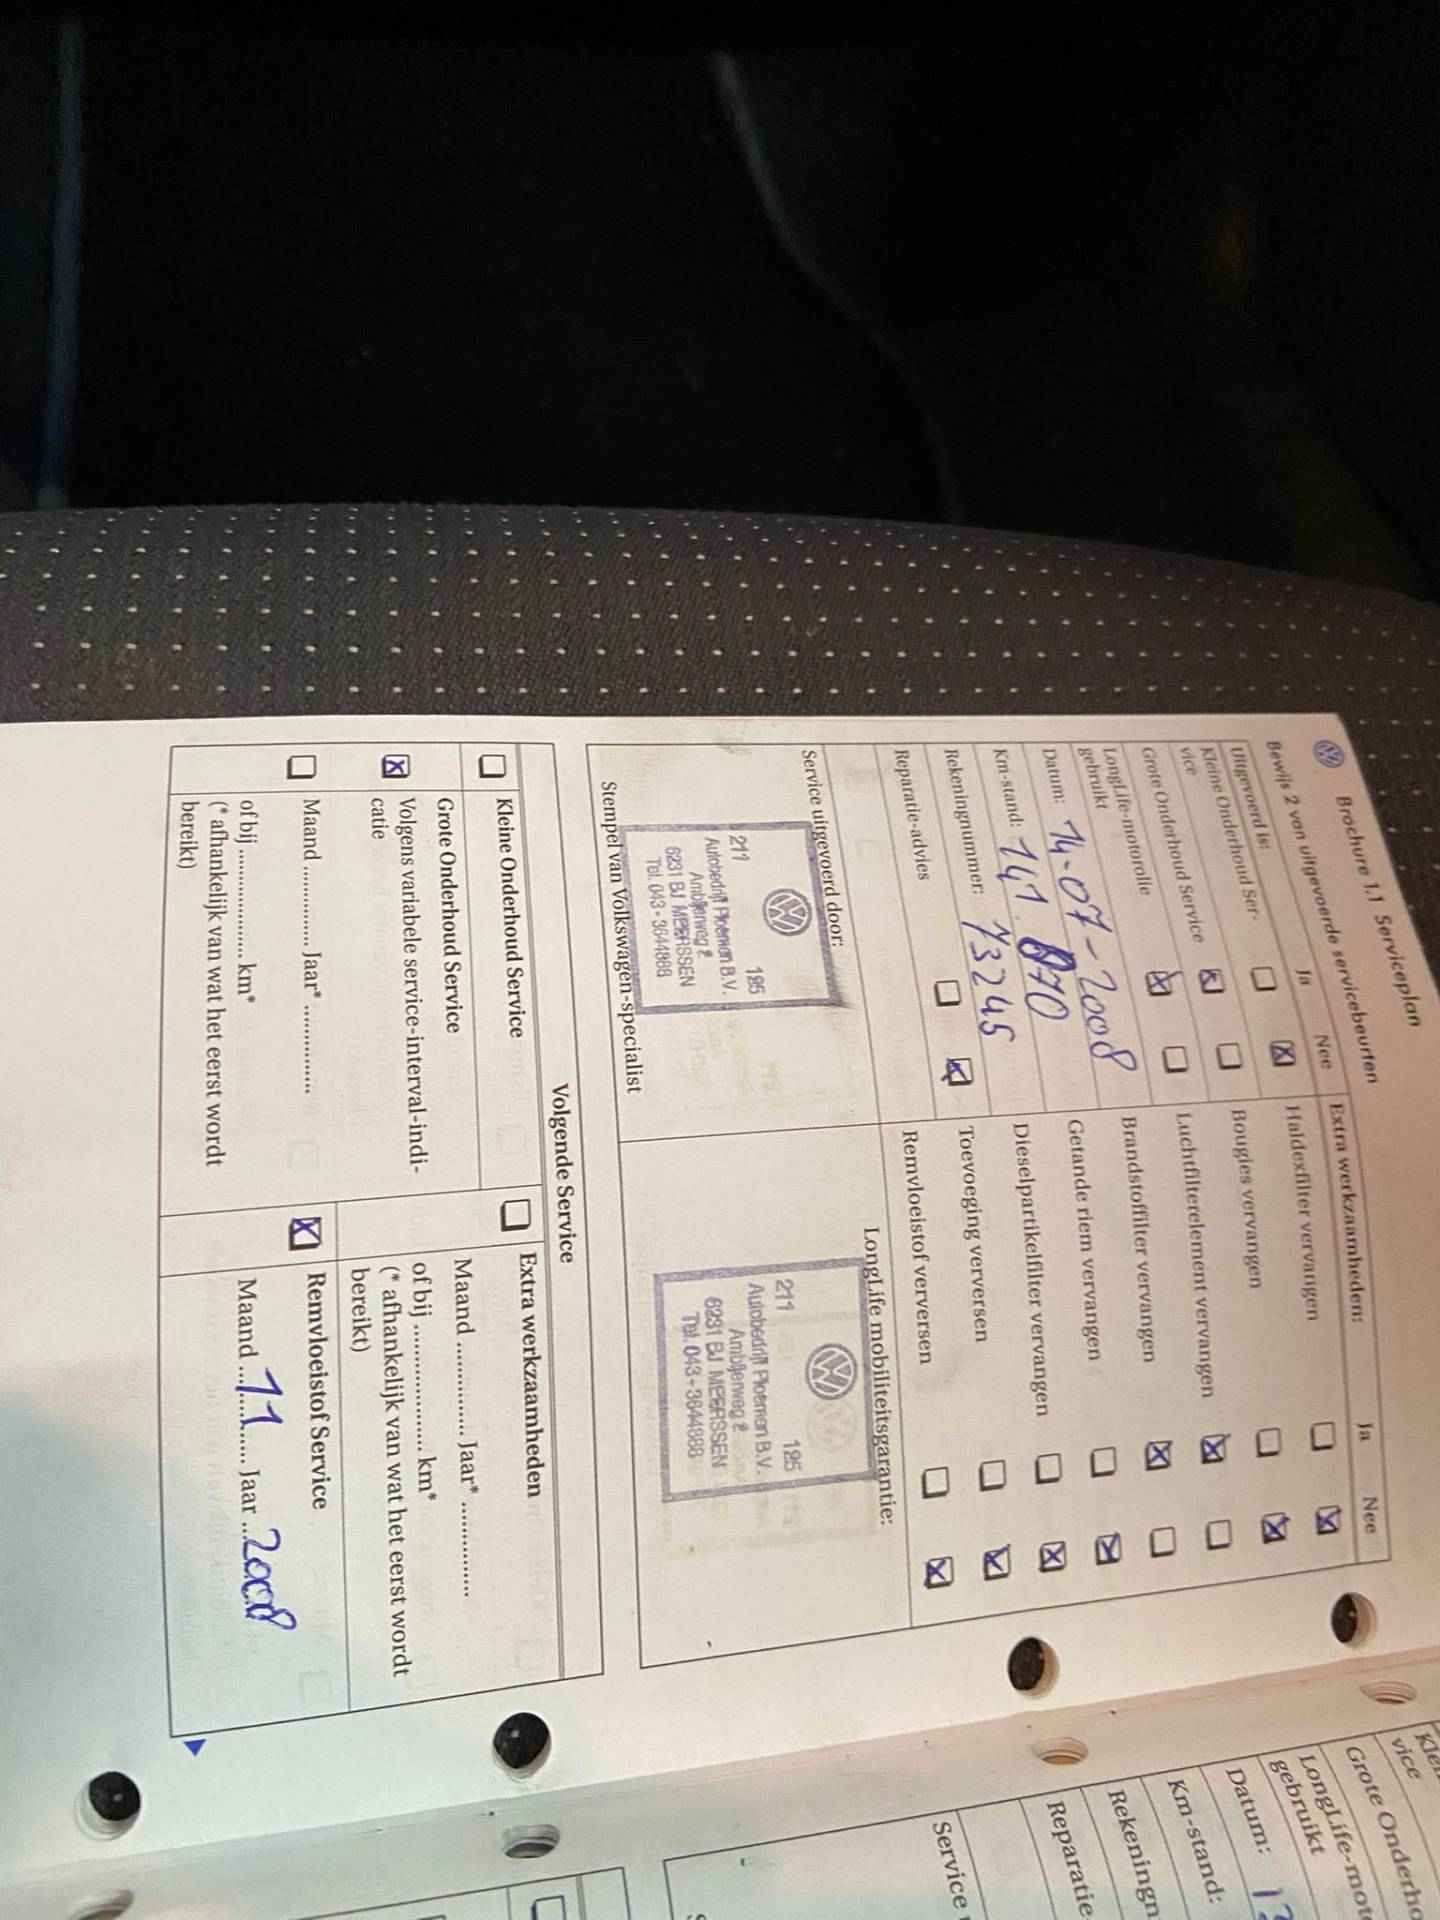 Brochure 1.1 Serviceplan
Bewijs 2 van uitgevoerde servicebeurten
Uitgevoerd is: Ja Nee
Kleine Onderhoud Ser-
vice
Grote Onderhoud Service
LongLife-motorolie
gebruikt
Datum: 14-07-2008
Km-stand: 141.070
Rekeningnummer: 73245
Reparatie-advies
Extra werkzaamheden: Ja Nee
Haldexfilter vervangen
Bougies vervangen
Luchtfilterelement vervangen
Brandstoffilter vervangen
Getande riem vervangen
Dieselpartikelfilter vervangen
Toevoeging verversen
Remvloeistof verversen
Service uitgevoerd door:
211 195
Autobedrijf Ploemen B.V.
Ambijerweg 2
6231 BJ MEERSSEN
Tel. 043-3644888
Stempel van Volkswagen-specialist
LongLife mobiliteitsgarantie:
211 195
Autobedrijf Ploemen B.V.
Ambijerweg 2
6231 BJ MEERSSEN
Tel. 043-3644888
Volgende Service
Kleine Onderhoud Service
Grote Onderhoud Service
Volgens variabele service-interval-indi-
catie
Maand .............. Jaar* ..............
of bij .................. km*
(* afhankelijk van wat het eerst wordt
bereikt)
Extra werkzaamheden
Maand .............. Jaar* ..............
of bij .................. km*
(* afhankelijk van wat het eerst wordt
bereikt)
Remvloeistof Service
Maand ...11... Jaar ...2008
vice
Grote Onderho
LongLife-moto
gebruikt
Datum:
Km-stand:
Rekeningn
Reparatie
Service